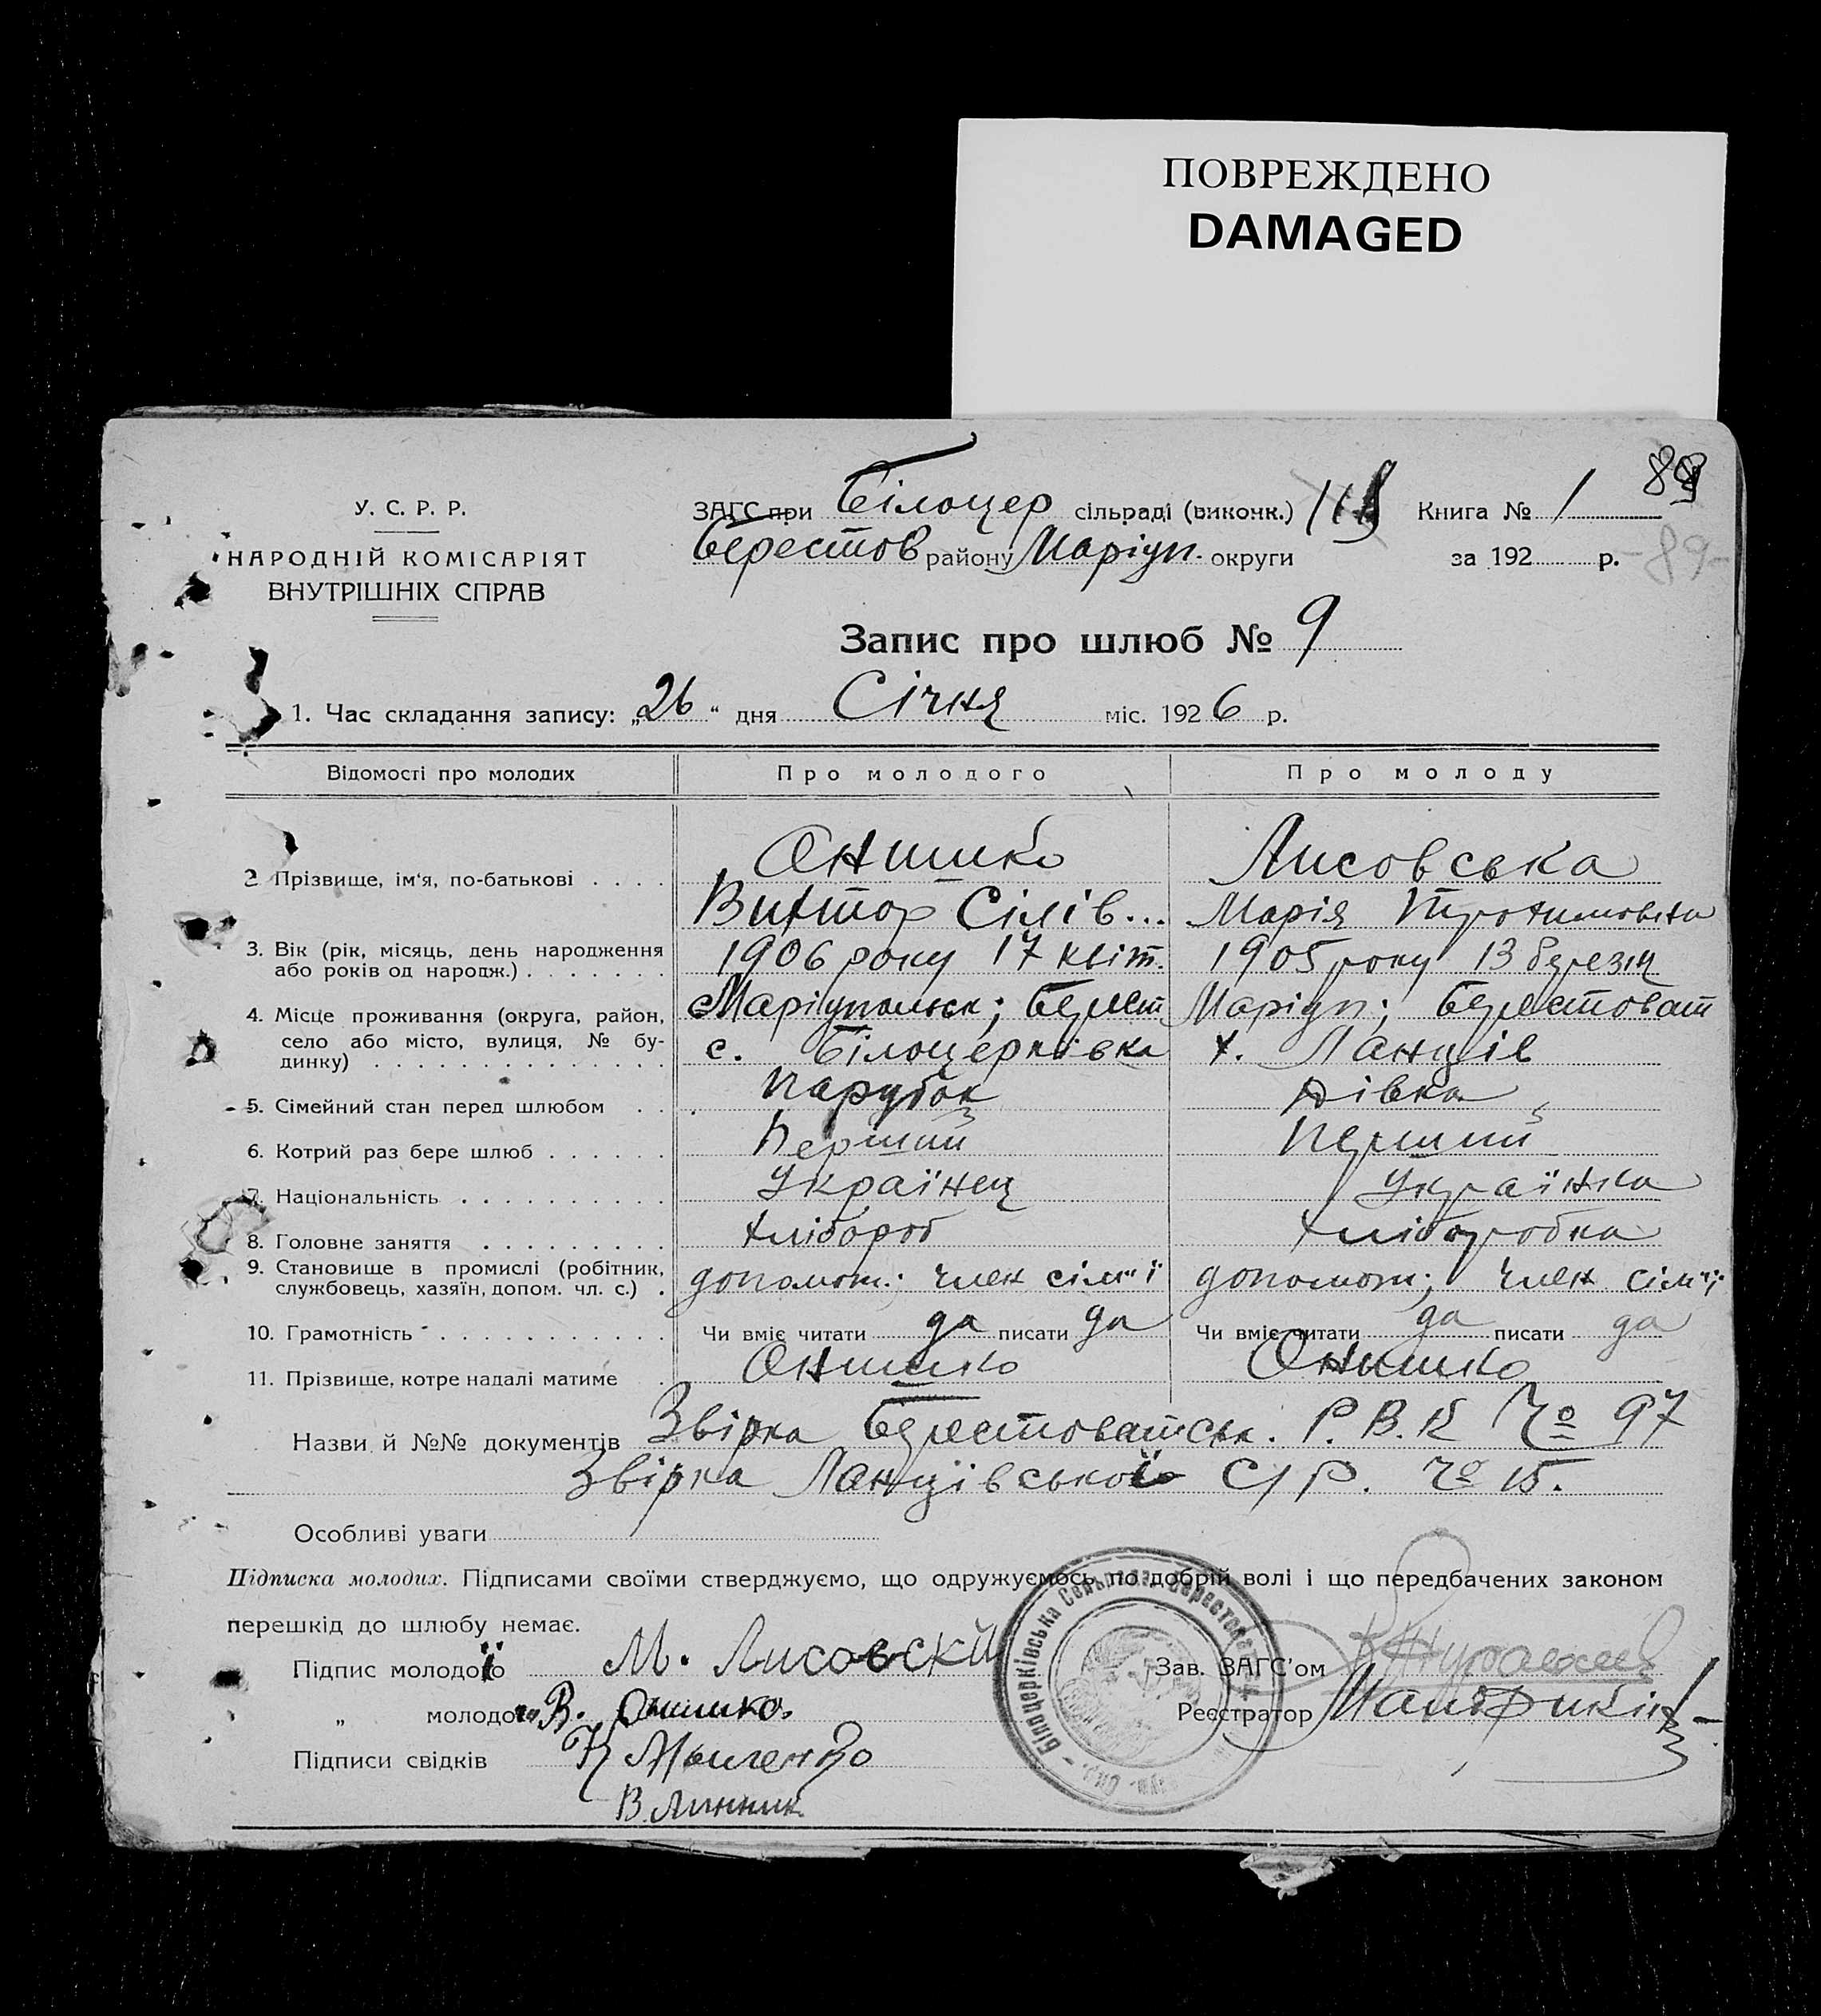 ПОВРЕЖДЕНО
DAMAGED
89
У. С. Р. Р.
НАРОДНІЙ КОМІСАРІЯТ
ВНУТРІШНІХ СПРАВ
ЗАГС при Білоцер сільраді (виконк.) Книга № 1
Берестов району Маріуп. округи за 192 р. -89-
Запис про шлюб № 9
1. Час складання запису: „26“ дня Січня міс. 1926 р.
Відомості про молодих Про молодого Про молоду
2. Прізвище, ім‘я, по-батькові . . . . Онишко Лисовська
Виктор Сілів... Марія Трохимовна
3. Вік (рік, місяць, день народження або років од народж.) . . . . . . . 1906 року 17 квіт. 1905 року 13 березня
4. Місце проживання (округа, район, Маріупольск; Берест Маріуп; Берестоват
село або місто, вулиця, № бу-динку) . . . . . . . . . . . . . . с. Білоцерківка х. Ланців
5. Сімейний стан перед шлюбом . . . парубок дівка
6. Котрий раз бере шлюб . . . . . . Перший перший
7. Національність . . . . . . . . . . Українец Українка
8. Головне заняття . . . . . . . . . хлібороб хліборобка
9. Становище в промислі (робітник, службовець, хазяїн, допом. чл. с.) . допомот.; член сім"ї допомот; член сім"ї
10. Грамотність . . . . . . . . . . . Чи вміє читати да писати да Чи вміє читати да писати да
11. Прізвище, котре надалі матиме . Онишко Онишко
Назви й №№ документів Звірка Берестоватськ. Р.В.К № 97
Звірка Ланцівської С/Р. № 15.
Особливі уваги
Підписка молодих. Підписами своїми стверджуємо, що одружуємось по добрій волі і що передбачених законом
перешкід до шлюбу немає.
Підпис молодої М. Лисовскй Зав. ЗАГС’ом
„ молодого В. Онишко. Реєстратор
Підписи свідків
В. Линник
Білоцерківська Сельрада